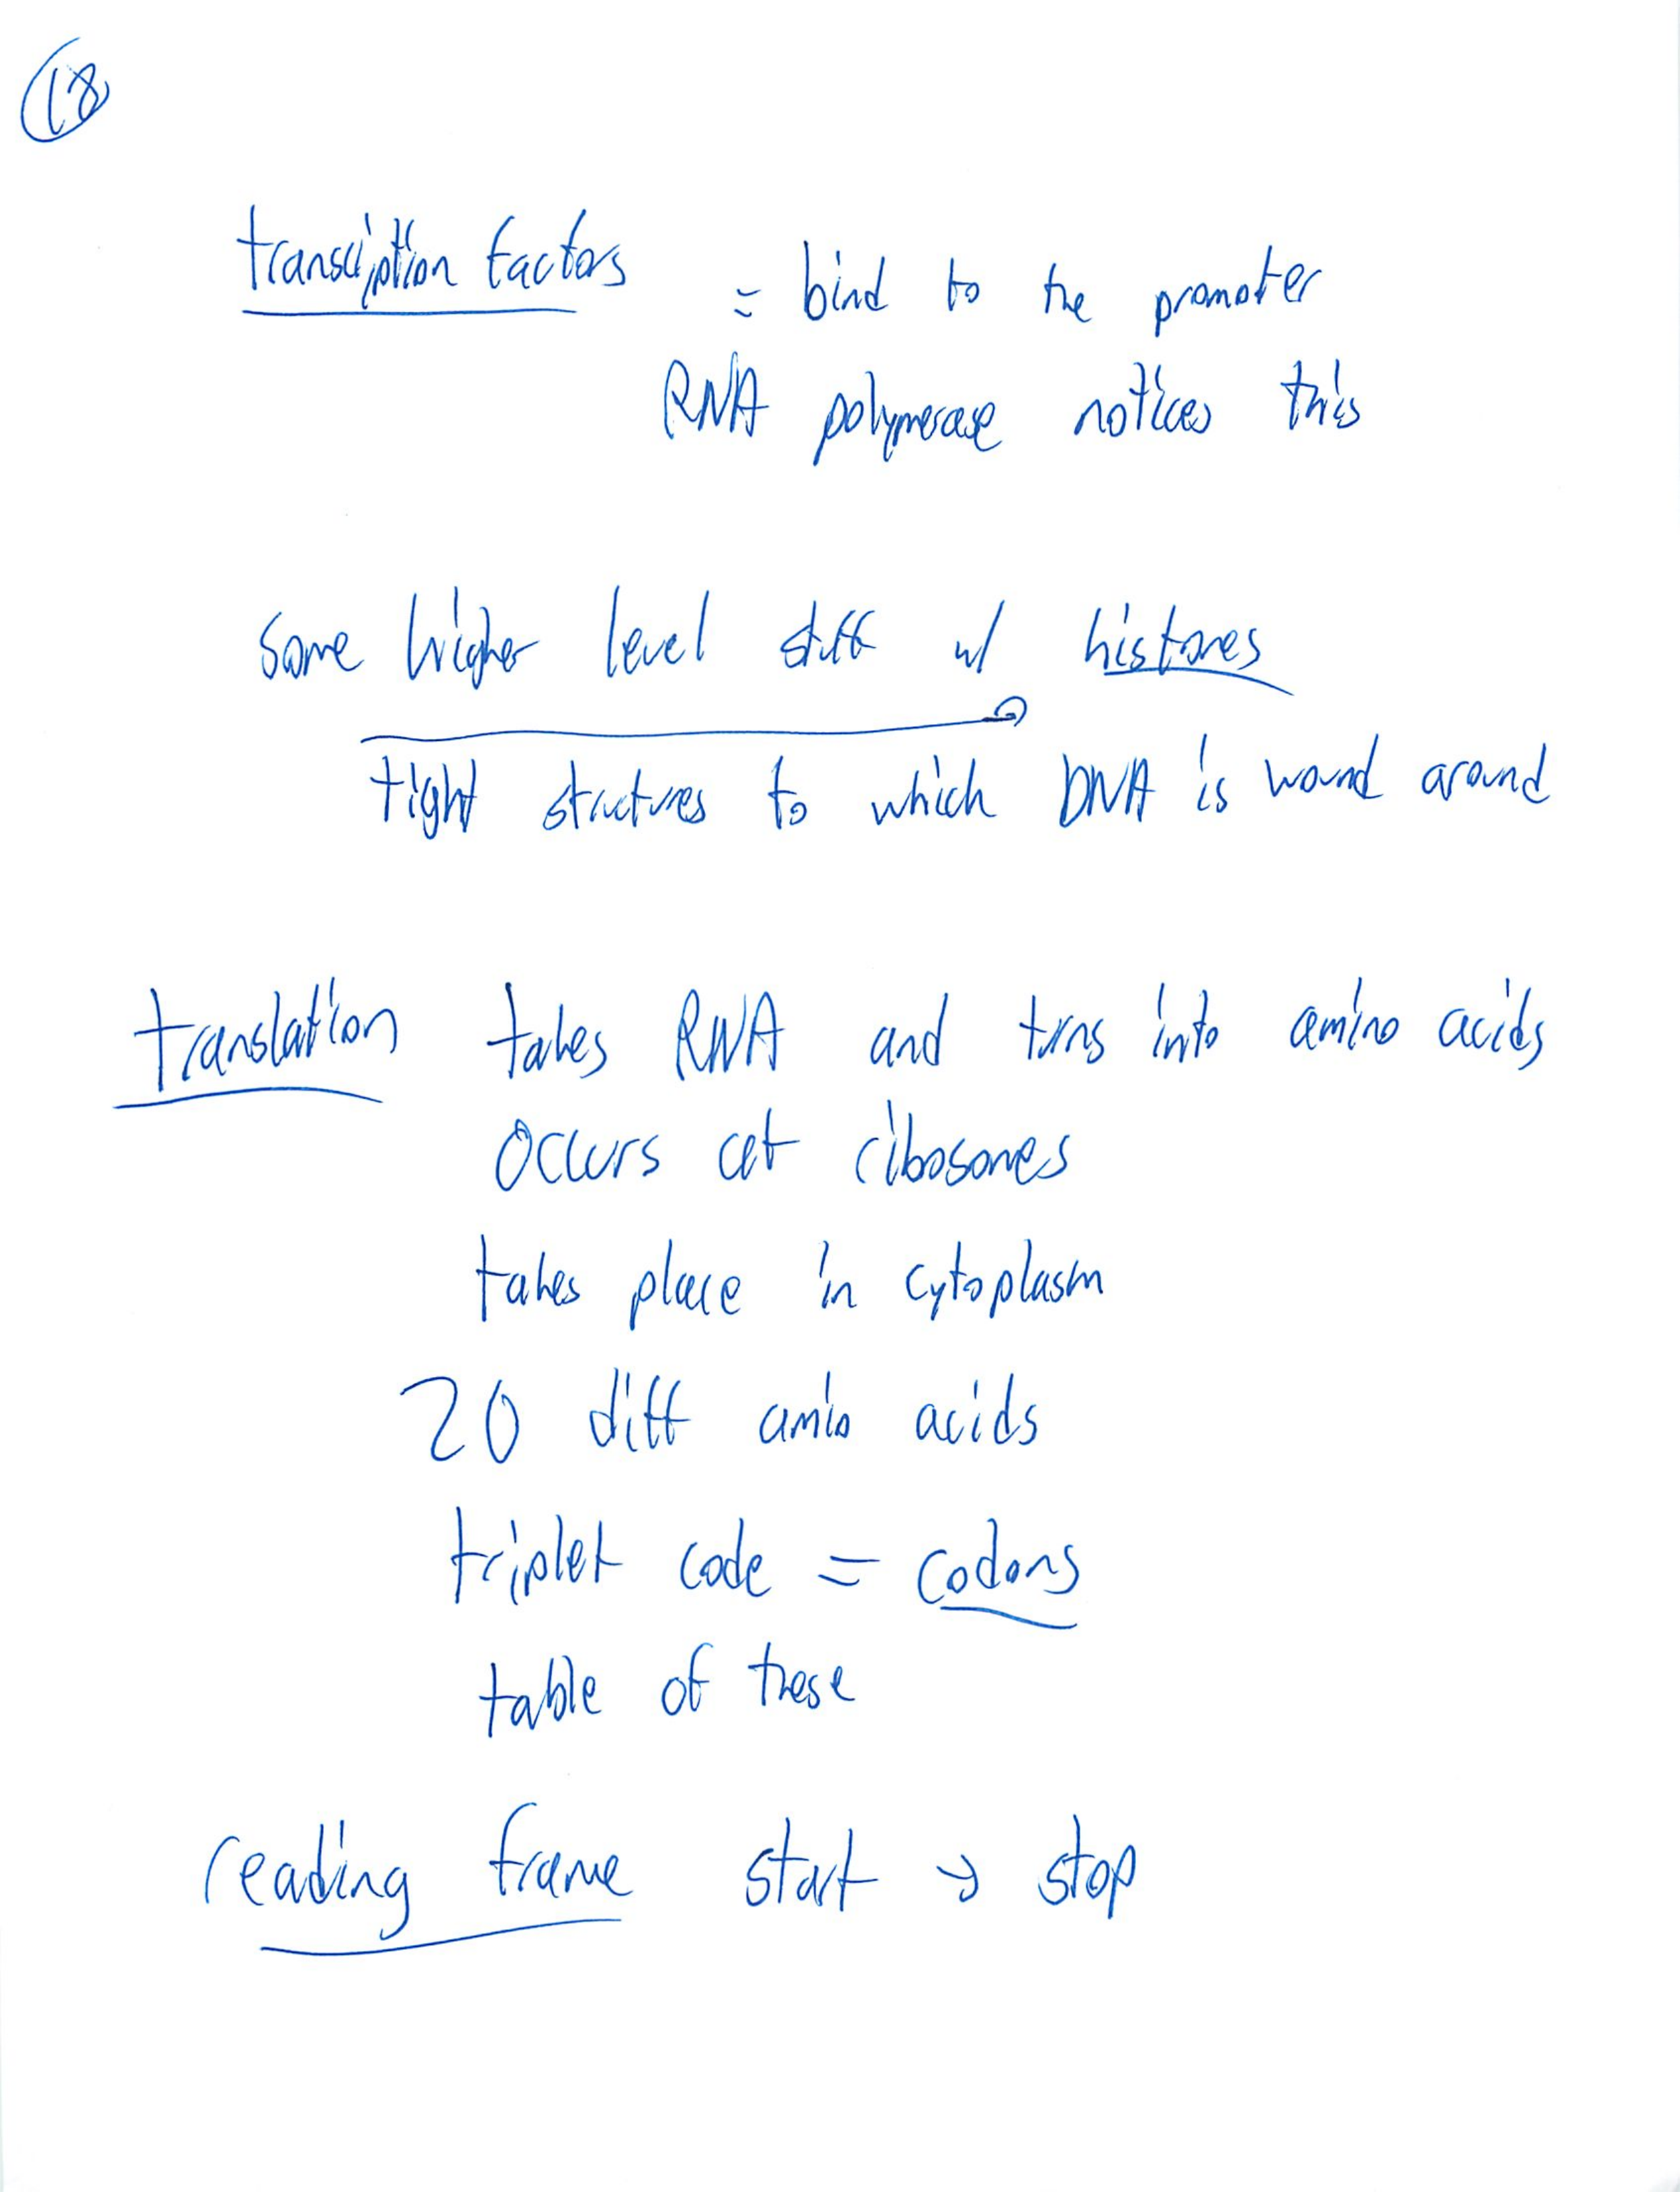 18
transcription factors = bind to the promoter
RNA polymerase notices this
Some higher level stuff w/ histones
tight structures to which DNA is wound around
translation takes RNA and turns into amino acids
Occurs at ribosomes
takes place in cytoplasm
20 diff amio acids
triplet code = codons
table of these
reading frame start → stop